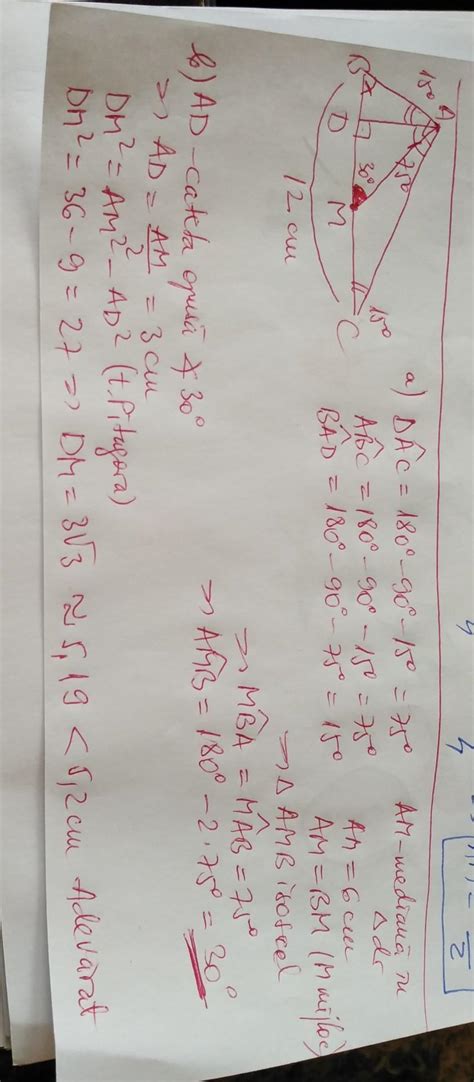 15° A
75°
B D 30° M C 15°
12 cm
a) DÂC = 180° - 90° - 15° = 75°
AB̂C = 180° - 90° - 15° = 75°
BÂD = 180° - 90° - 75° = 15°
AM - mediană în
Δdr
AM = 6 cm
AM = BM (M mijloc)
⇒ Δ AMB isoscel
⇒ MB̂A = MÂB = 75°
⇒ AM̂B = 180° - 2·75° = 30°
b) AD - cateta opusă ∢ 30°
⇒ AD = AM/2 = 3 cm
DM² = AM² - AD² (t. Pitagora)
DM² = 36 - 9 = 27 ⇒ DM = 3√3 ≈ 5,19 < 5,2 cm Adevărat